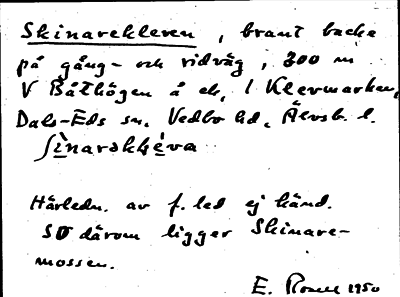 Skinarekleven, brant backe
på gång- och ridväg, 300 m
V Båthögen å ek, i Klevmarken,
Dals-Eds sn, Vedbo hd, Älvsb. l.
ʃìnarəkléva
Härledn. av f. led ej känd.
SO därom ligger Skinare-
mossen.
E. 1950